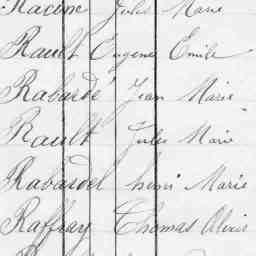 Racine Jules Marie
Rault Eugene Emile
Rabardé Jean Marie
Rault Jules Marie
Rabardel henri Marie
Raffray Thomas Alexis